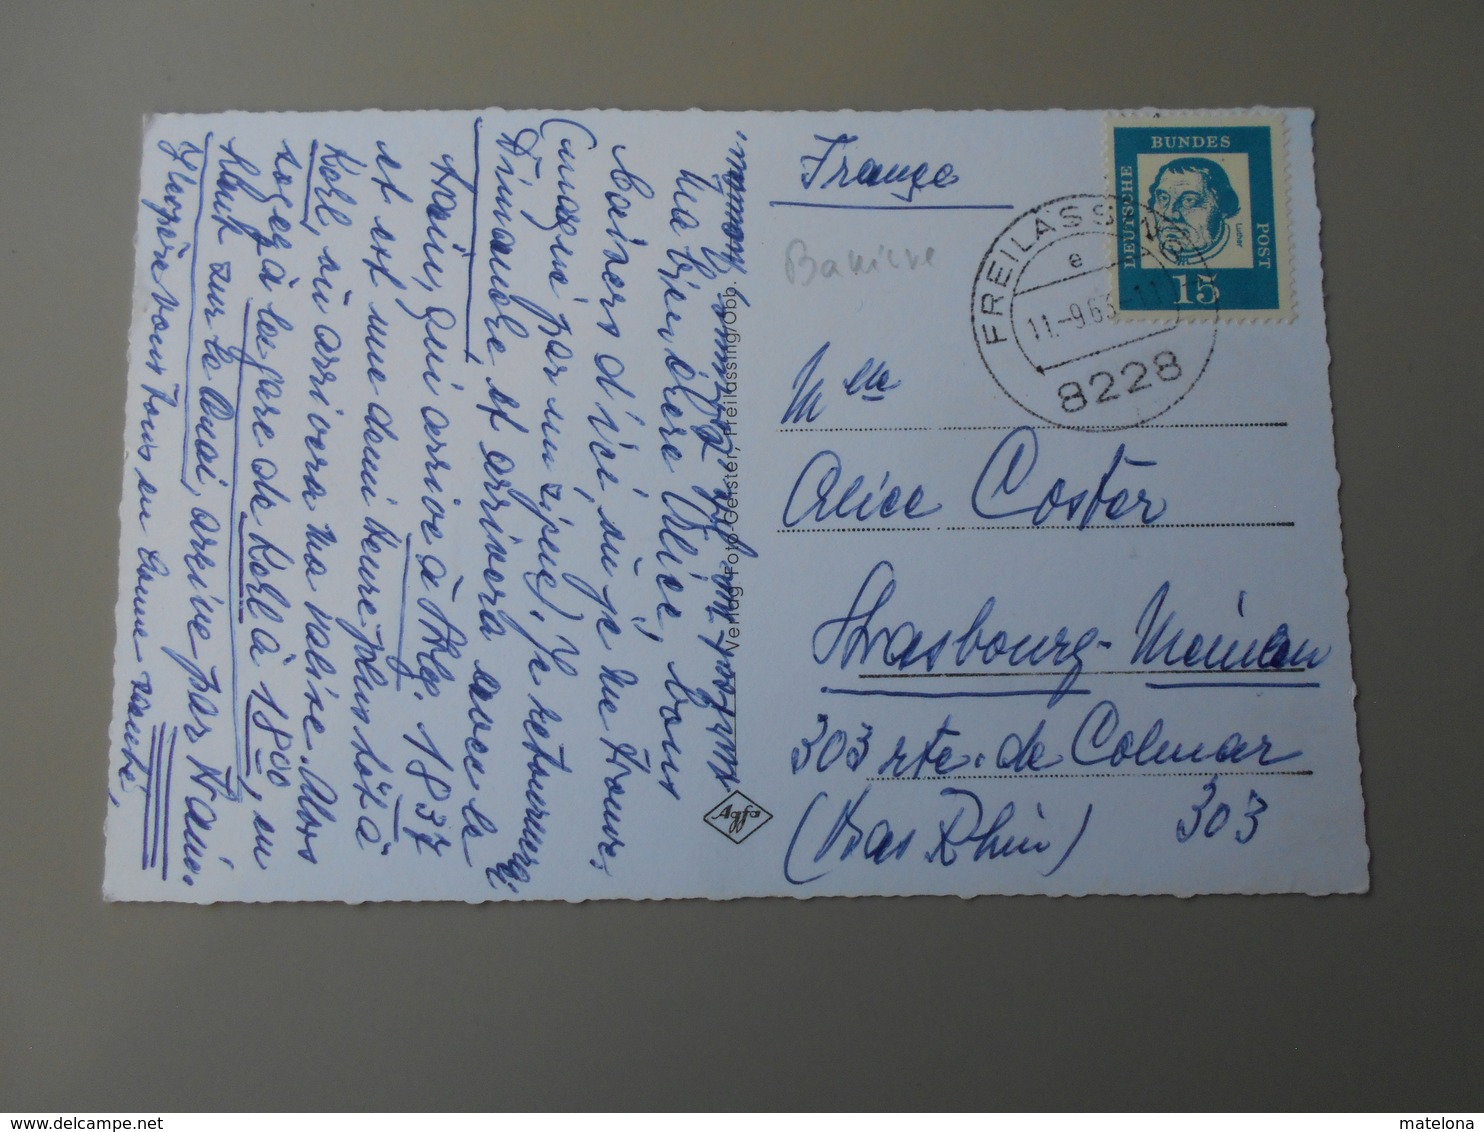 Ma bien chère Alice, bons
baisers d'ici, où je me trouve,
(amené par un zigue). Je retournerai
Dimanche, et arrivera avec le
train, qui arrive à Strbg. 18 37
et est une demi heure plus tôt à
Kehl, où arrivera ma valise. Alors
soyez à la gare de Kehl à 18 00, en
haut sur le Quai, arrive par train.
J'espère vous tous en bonne santé,
Verlag Foto-Geister, Freilassing/Obb.
Agfa
France
Bavière
DEUTSCHE BUNDES POST
Luther
15
FREILASSING
e
11.-9.63-11
8228
Mme
Alice Coster
Strasbourg-Meinau
303 rte. de Colmar
(Bas Rhin) 303
www.delcampe.net
matelona